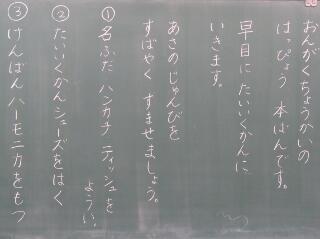 おんがくちょうかいの
はっぴょう 本ばんです。
早目に たいいくかんに
いきます。
あさの じゅんびを
すばやく すませましょう。
① 名ふだ ハンカチ ティッシュを
ようい。
② たいいくかんシューズをはく
③ けんばん ハーモニカをもつ